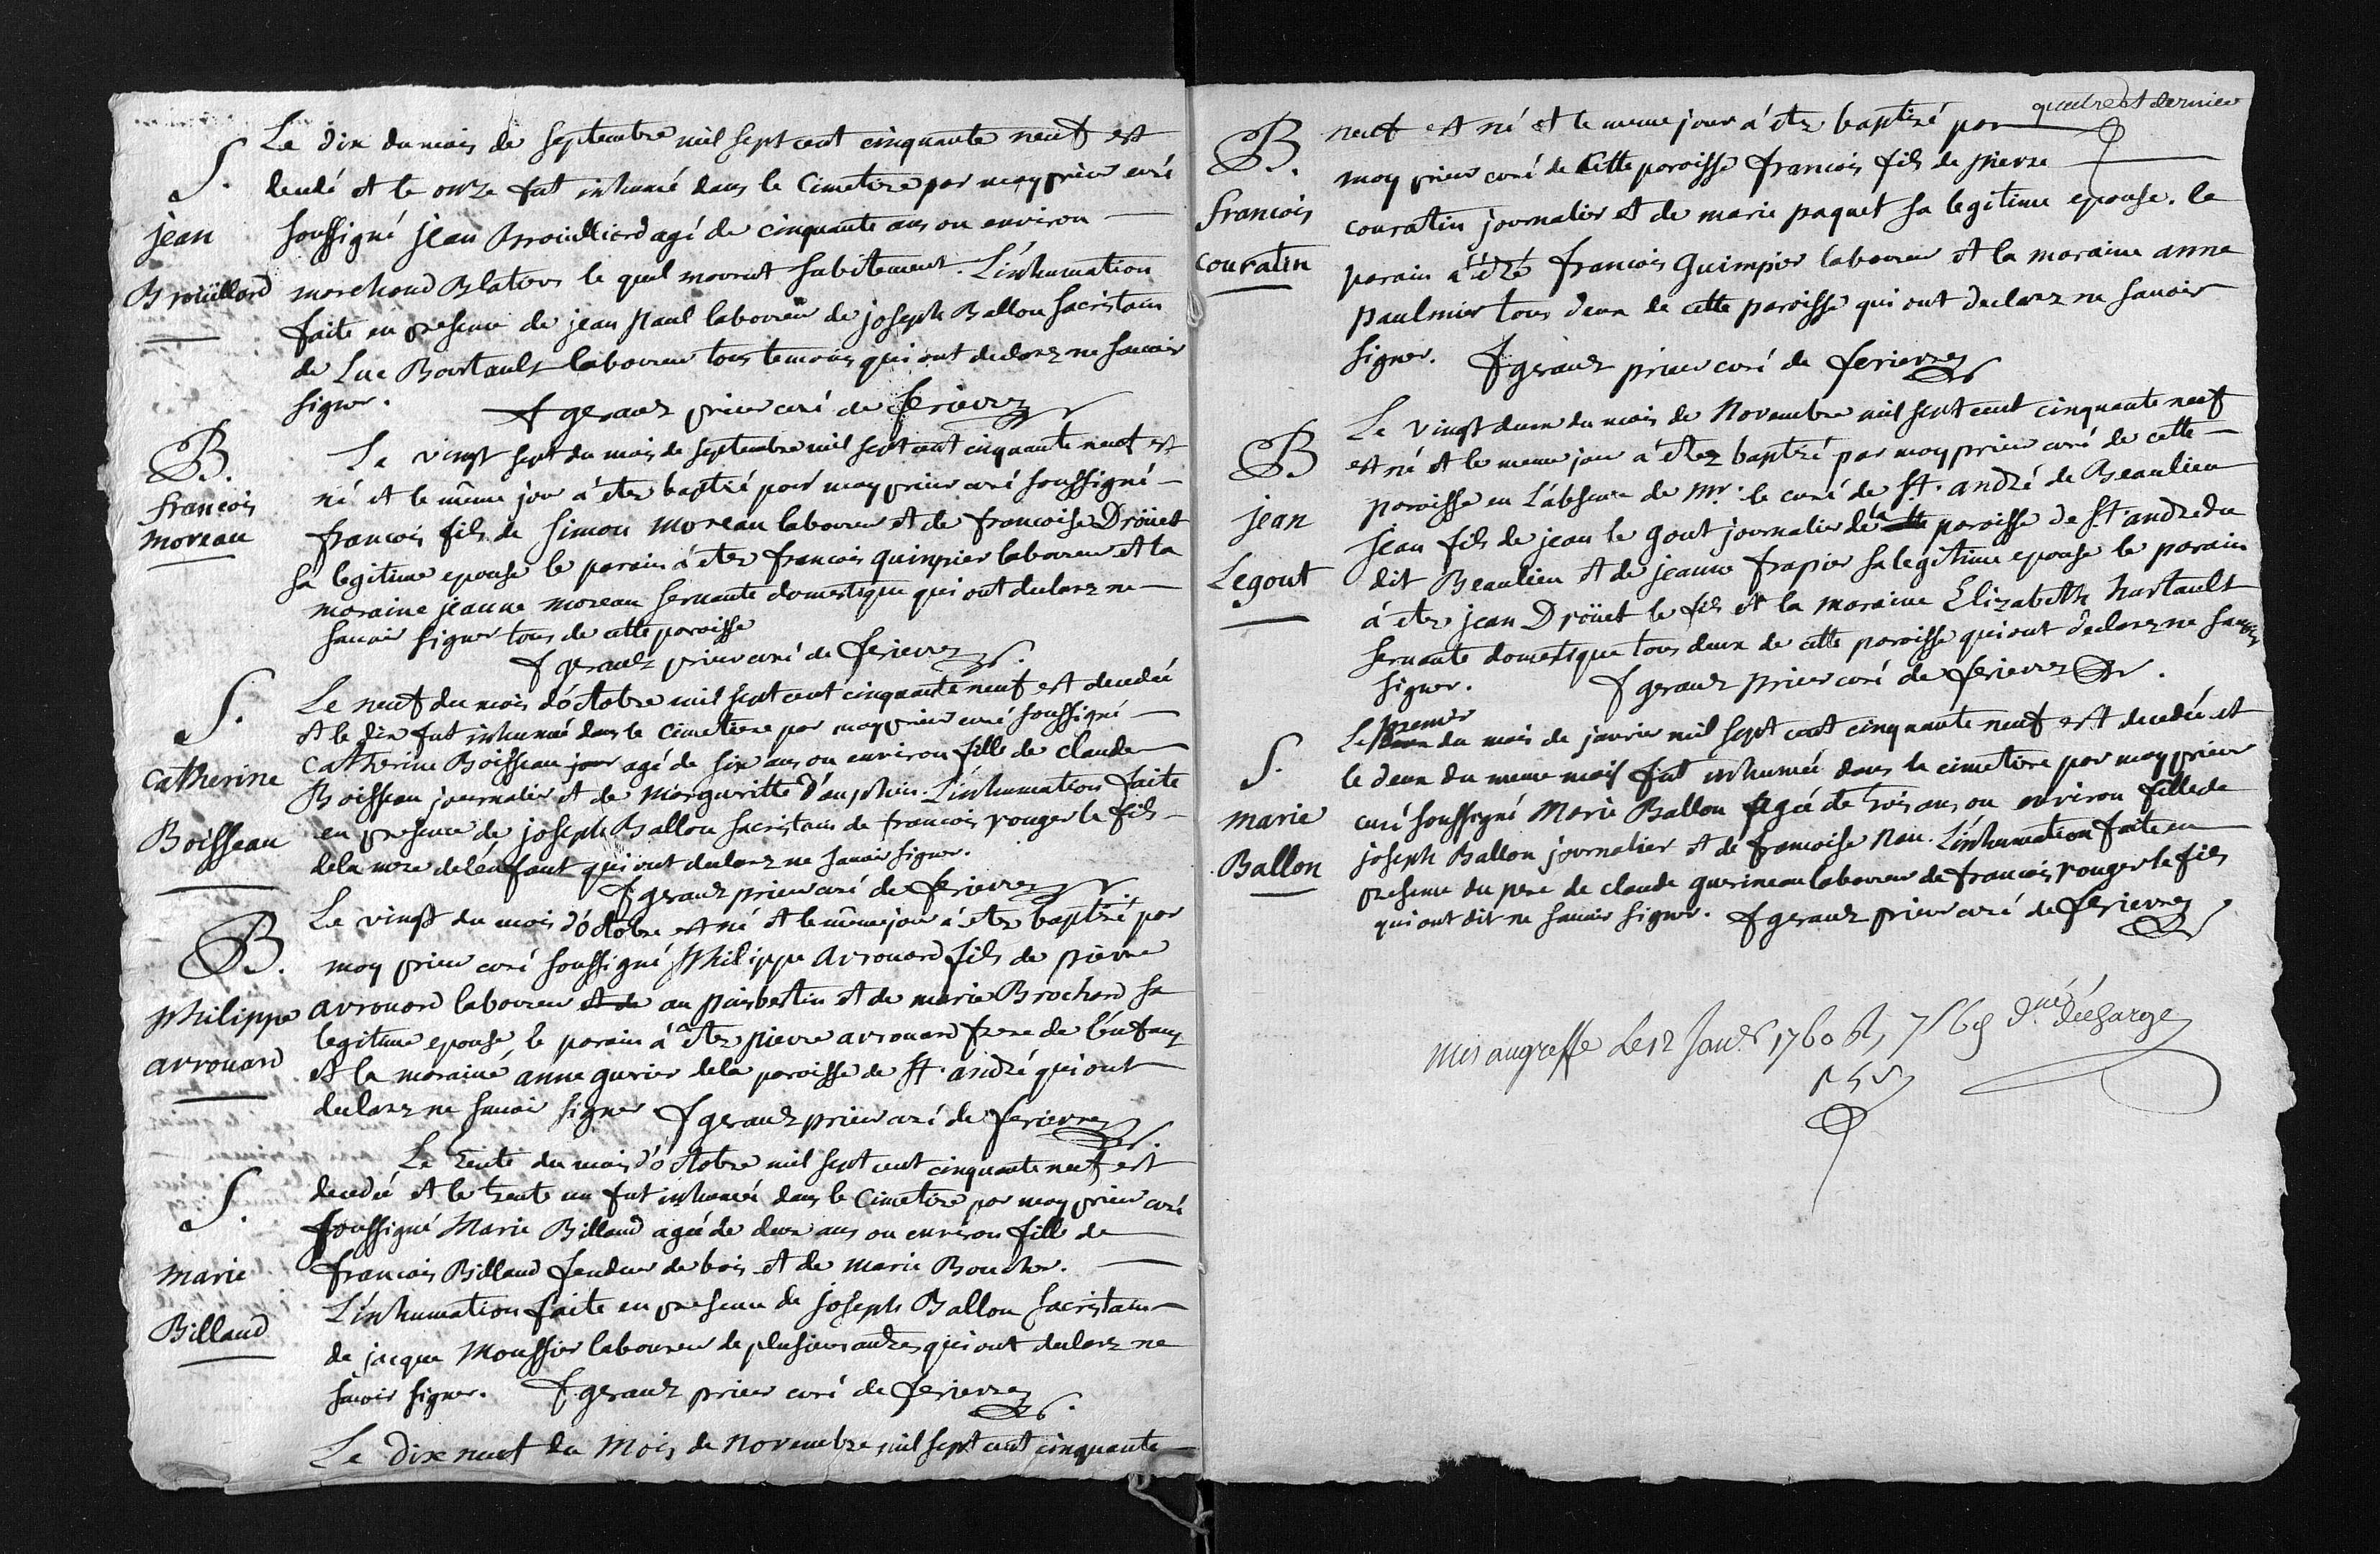 S.
jean
Broüillard
Le dix du mois de septembre mil sept cent cinquante neuf est
decedé et le onze fut inhumé dans le Cimetiere par moy prieur curé
soussigné jean Brouilliard agé de cinquante ans ou environ
marchand Blatier le quel mourut subitement. L'inhumation
faite en presence de jean paul laboureur de joseph Ballon sacristain
de Luc Bourtault laboureur tous temoins qui ont declarez ne savoir
signer.
f geraud prieur curé de ferierres
B.
francois
moreau
Le vingt sept du mois de septembre mil sept cent cinquante neuf est
né et le même jour a étez baptisé par moy prieur curé soussigné
francois fils de simon moreau laboureur et de francoise Droüet
sa legitime epouse le parain a étez francois quimpier laboureur et la
maraine jeanne moreau servante domestique qui ont declarez ne
savoir signer tous de cette paroisse
f geraud prieur curé de ferierres
S.
catherine
Boisseau
Le neuf du mois d'octobre mil sept cent cinquante neuf est decedée
et le dix fut inhumée dans le cimetiere par moy prieur curé soussigné
catherine Boisseau jour agé de six ans ou environ fille de claude
Boisseau journalier et de marguritte d'auphin. L'inhumation faite
en presence de joseph Ballon sacristain de francois rouger le fils
de la mere de l'enfant qui ont declarez ne savoir signer.
f geraud prieur curé de ferierres
B.
philippe
arrouard
Le vingt du mois d'octobre est né et le même jour a étez baptisé par
moy prieur curé soussigné philippe arrouard fils de pierre
arrouard laboureur et de au puisbertin et de marie Brochard sa
legitime epouse, le parain a étez pierre arrouard frere de l'enfant
et la maraine anne gurier de la paroisse de st. andré qui ont
declarez ne savoir signer f geraud prieur curé de ferierres
S.
marie
Billaud
Le trente du mois d'octobre mil sept cent cinquante neuf est
decedée et le trente un fut inhumée dans le Cimetiere par moy prieur curé
soussigné Marie Billaud agée de deux ans ou environ fille de
francois Billaud fendeur de bois et de marie Boucher.
L'inhumation faite en presence de joseph Ballon sacristain
de jacque Moussier laboureur de plusieurs autres qui ont declarez ne
savoir signer. f geraud prieur curé de ferierres
Le dix neuf du Mois de novembre mil sept cent cinquante
quatre et dernier
B.
francois
couratin
neuf est né et le meme jour a étez baptisé par
moy prieur curé de cette paroisse francois fils de pierre
couratin journalier et de marie paquet sa legitime epouse. le
parain a été francois Guimpier laboureur et la maraine anne
paulmier tous deux de cette paroisse qui ont declarez ne savoir
signer. f geraud prieur curé de ferierres
B
jean
Legout
Le vingt deux du mois de novembre mil sept cent cinquante neuf
est né et le meme jour a étez baptisé par moy prieur curé de cette
paroisse en l'absence de Mr. le curé de st. andré de Beaulieu
jean fils de jean le gout journalier de la paroisse de st andre du
dit Beaulieu et de jeanne frapier sa legitime epouse le parain
a étez jean Droüet le fils et la maraine Elizabeth hurtault
servante domestique tous deux de cette paroisse qui ont declarez ne savoir
signer. f geraud prieur curé de ferierres
S.
marie
Ballon
Le premier du mois de janvier mil sept cent cinquante neuf est decedée et
le deux du meme mois fut inhumée dans le cimetiere par moy prieur
curé soussigné Marie Ballon agée de trois ans ou environ fille de
joseph Ballon journalier et de francoise nau. L'inhumation faite en
presence du pere de claude guerineau laboureur de francois rouger le fils
qui ont dit ne savoir signer. f geraud prieur curé de ferierres
Mis au greffe Le 12 Janv. 1760